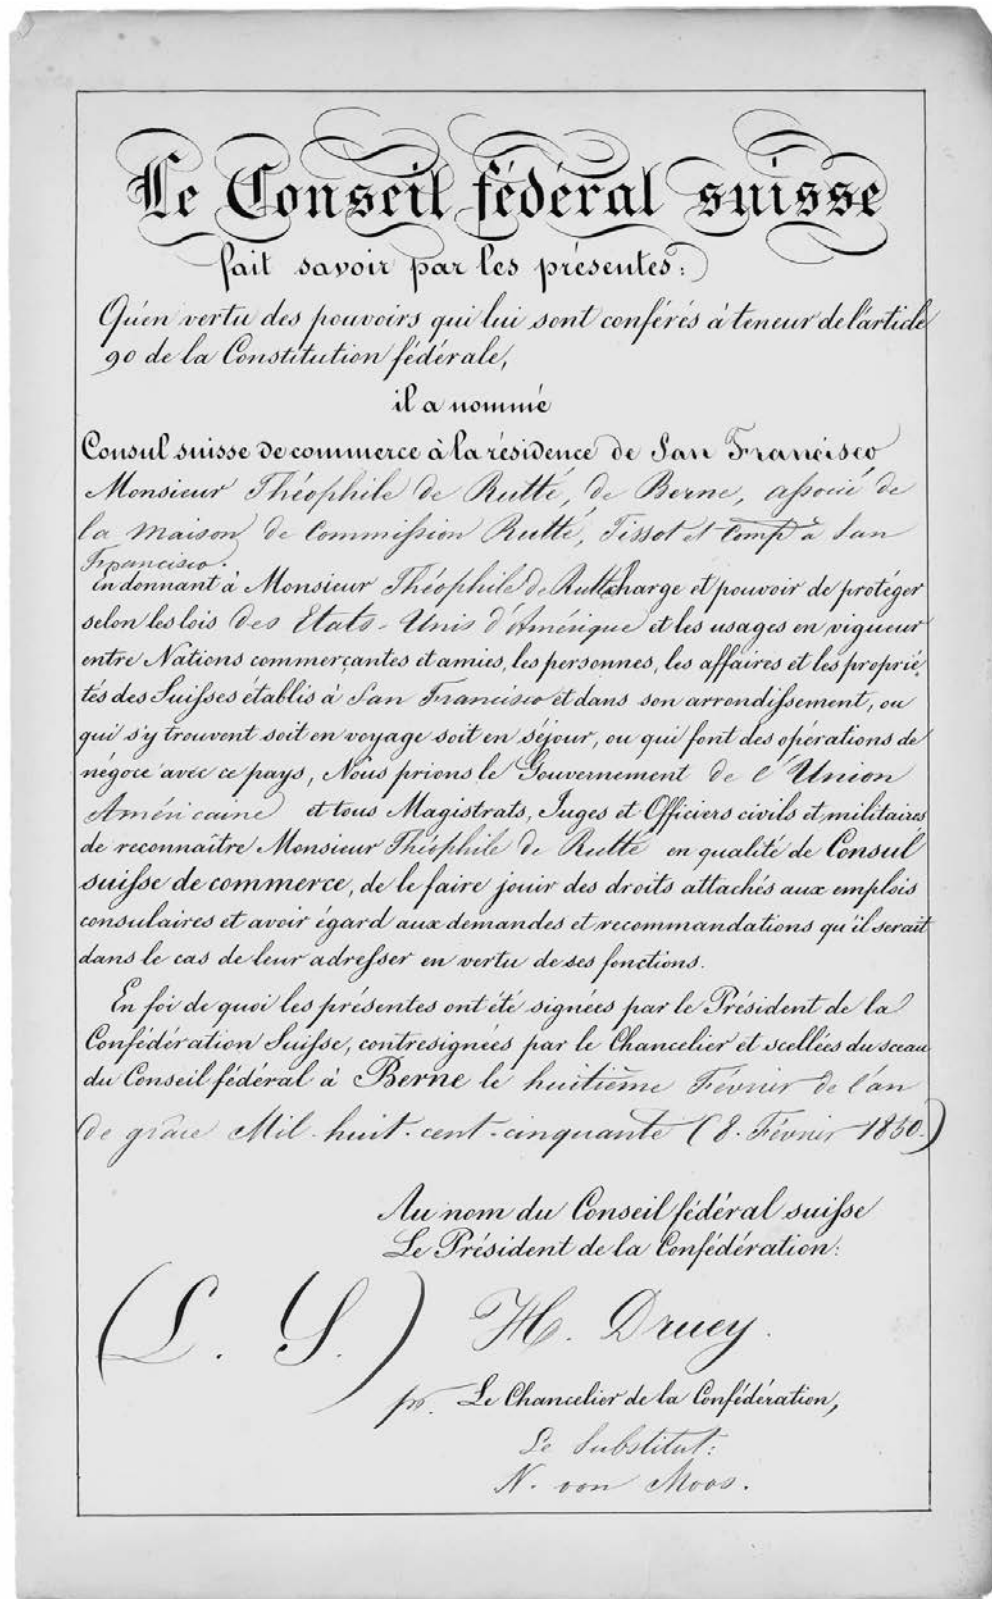 Le Conseil fédéral suisse
fait savoir par les présentes:
Qu'en vertu des pouvoirs qui lui sont conférés à teneur de l'article
90 de la Constitution fédérale,
il a nommé
Consul suisse de commerce à la résidence de San Francisco
Monsieur Théophile de Rutté, de Berne, associé de
la maison de Commission Rutté, Tissot et Comp. à San
Francisco.
En donnant à Monsieur Théophile de Rutté charge et pouvoir de protéger
selon les lois des Etats-Unis d'Amérique et les usages en vigueur
entre Nations commerçantes et amies, les personnes, les affaires et les proprié-
tés des Suisses établis à San Francisco et dans son arrondissement, ou
qui s'y trouvent soit en voyage soit en séjour, ou qui font des opérations de
négoce avec ce pays, Nous prions le Gouvernement de l'Union
Américaine et tous Magistrats, Juges et Officiers civils et militaires
de reconnaître Monsieur Théophile de Rutté en qualité de Consul
suisse de commerce, de le faire jouir des droits attachés aux emplois
consulaires et avoir égard aux demandes et recommandations qu'il serait
dans le cas de leur adresser en vertu de ses fonctions.
En foi de quoi les présentes ont été signées par le Président de la
Confédération Suisse, contresignées par le Chancelier et scellées du sceau
du Conseil fédéral à Berne le huitième Février de l'an
de grâce Mil-huit-cent-cinquante (8. Février 1850.)
Au nom du Conseil fédéral suisse
Le Président de la Confédération:
(L. S.) H. Druey.
pr. Le Chancelier de la Confédération,
Le Substitut:
N. von Moos.